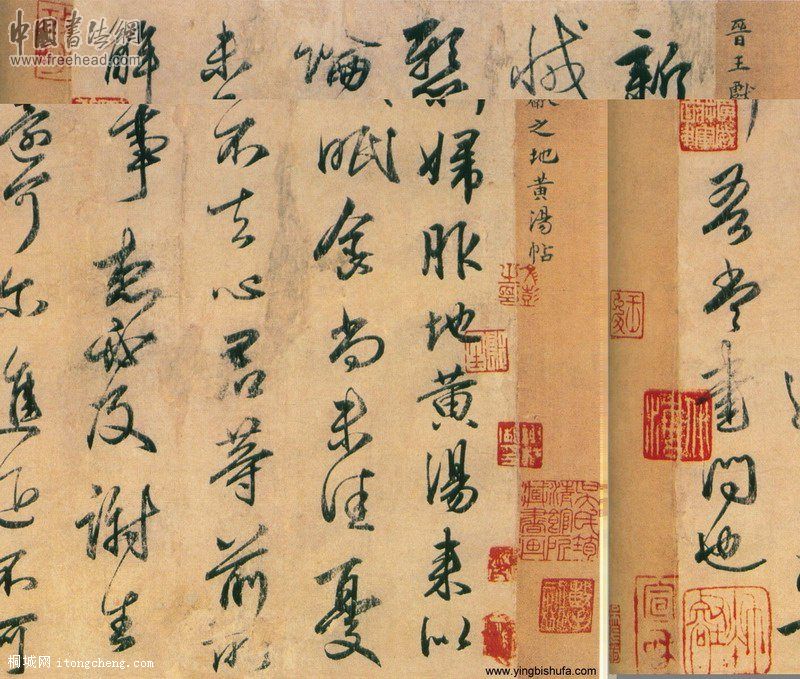 中国書法網
www.freehead.com
晉王獻
新
減
懸
論
未
解
吾當書問也
之地黃湯帖
婦服地黃湯來似
眠食尚未佳憂
不去心君等前所
事想必及謝生
還何爾進退不可
桐城网 itongcheng.com
www.yingbishufa.com